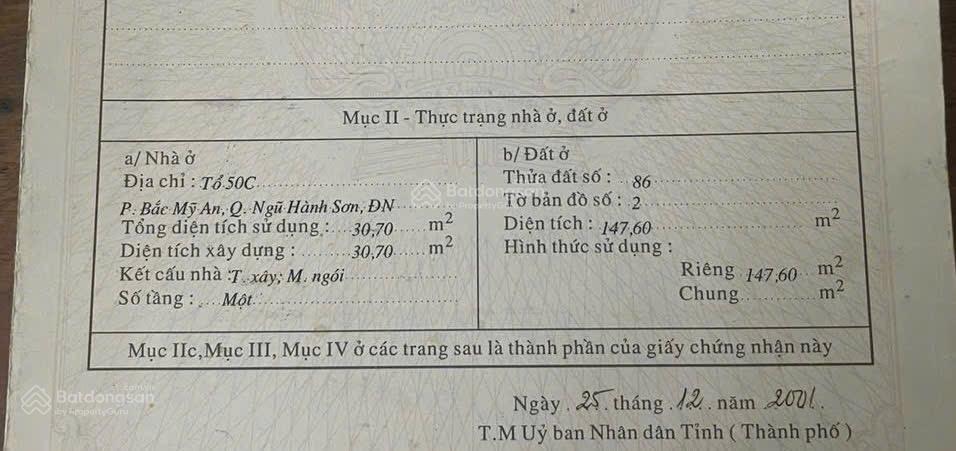 Mục II - Thực trạng nhà ở, đất ở
a/ Nhà ở
Địa chỉ : Tổ 50C
P. Bắc Mỹ An, Q. Ngũ Hành Sơn, ĐN
Tổng diện tích sử dụng : 30,70 m²
Diện tích xây dựng : 30,70 m²
Kết cấu nhà : T. xây; M. ngói
Số tầng : Một
b/ Đất ở
Thửa đất số : 86
Tờ bản đồ số : 2
Diện tích : 147,60 m²
Hình thức sử dụng :
Riêng 147,60 m²
Chung m²
Mục IIc, Mục III, Mục IV ở các trang sau là thành phần của giấy chứng nhận này
Ngày 25 tháng 12 năm 2001
T.M Uỷ ban Nhân dân Tỉnh ( Thành phố )
Batdongsan
by PropertyGuru
Batdongsan
by PropertyGuru